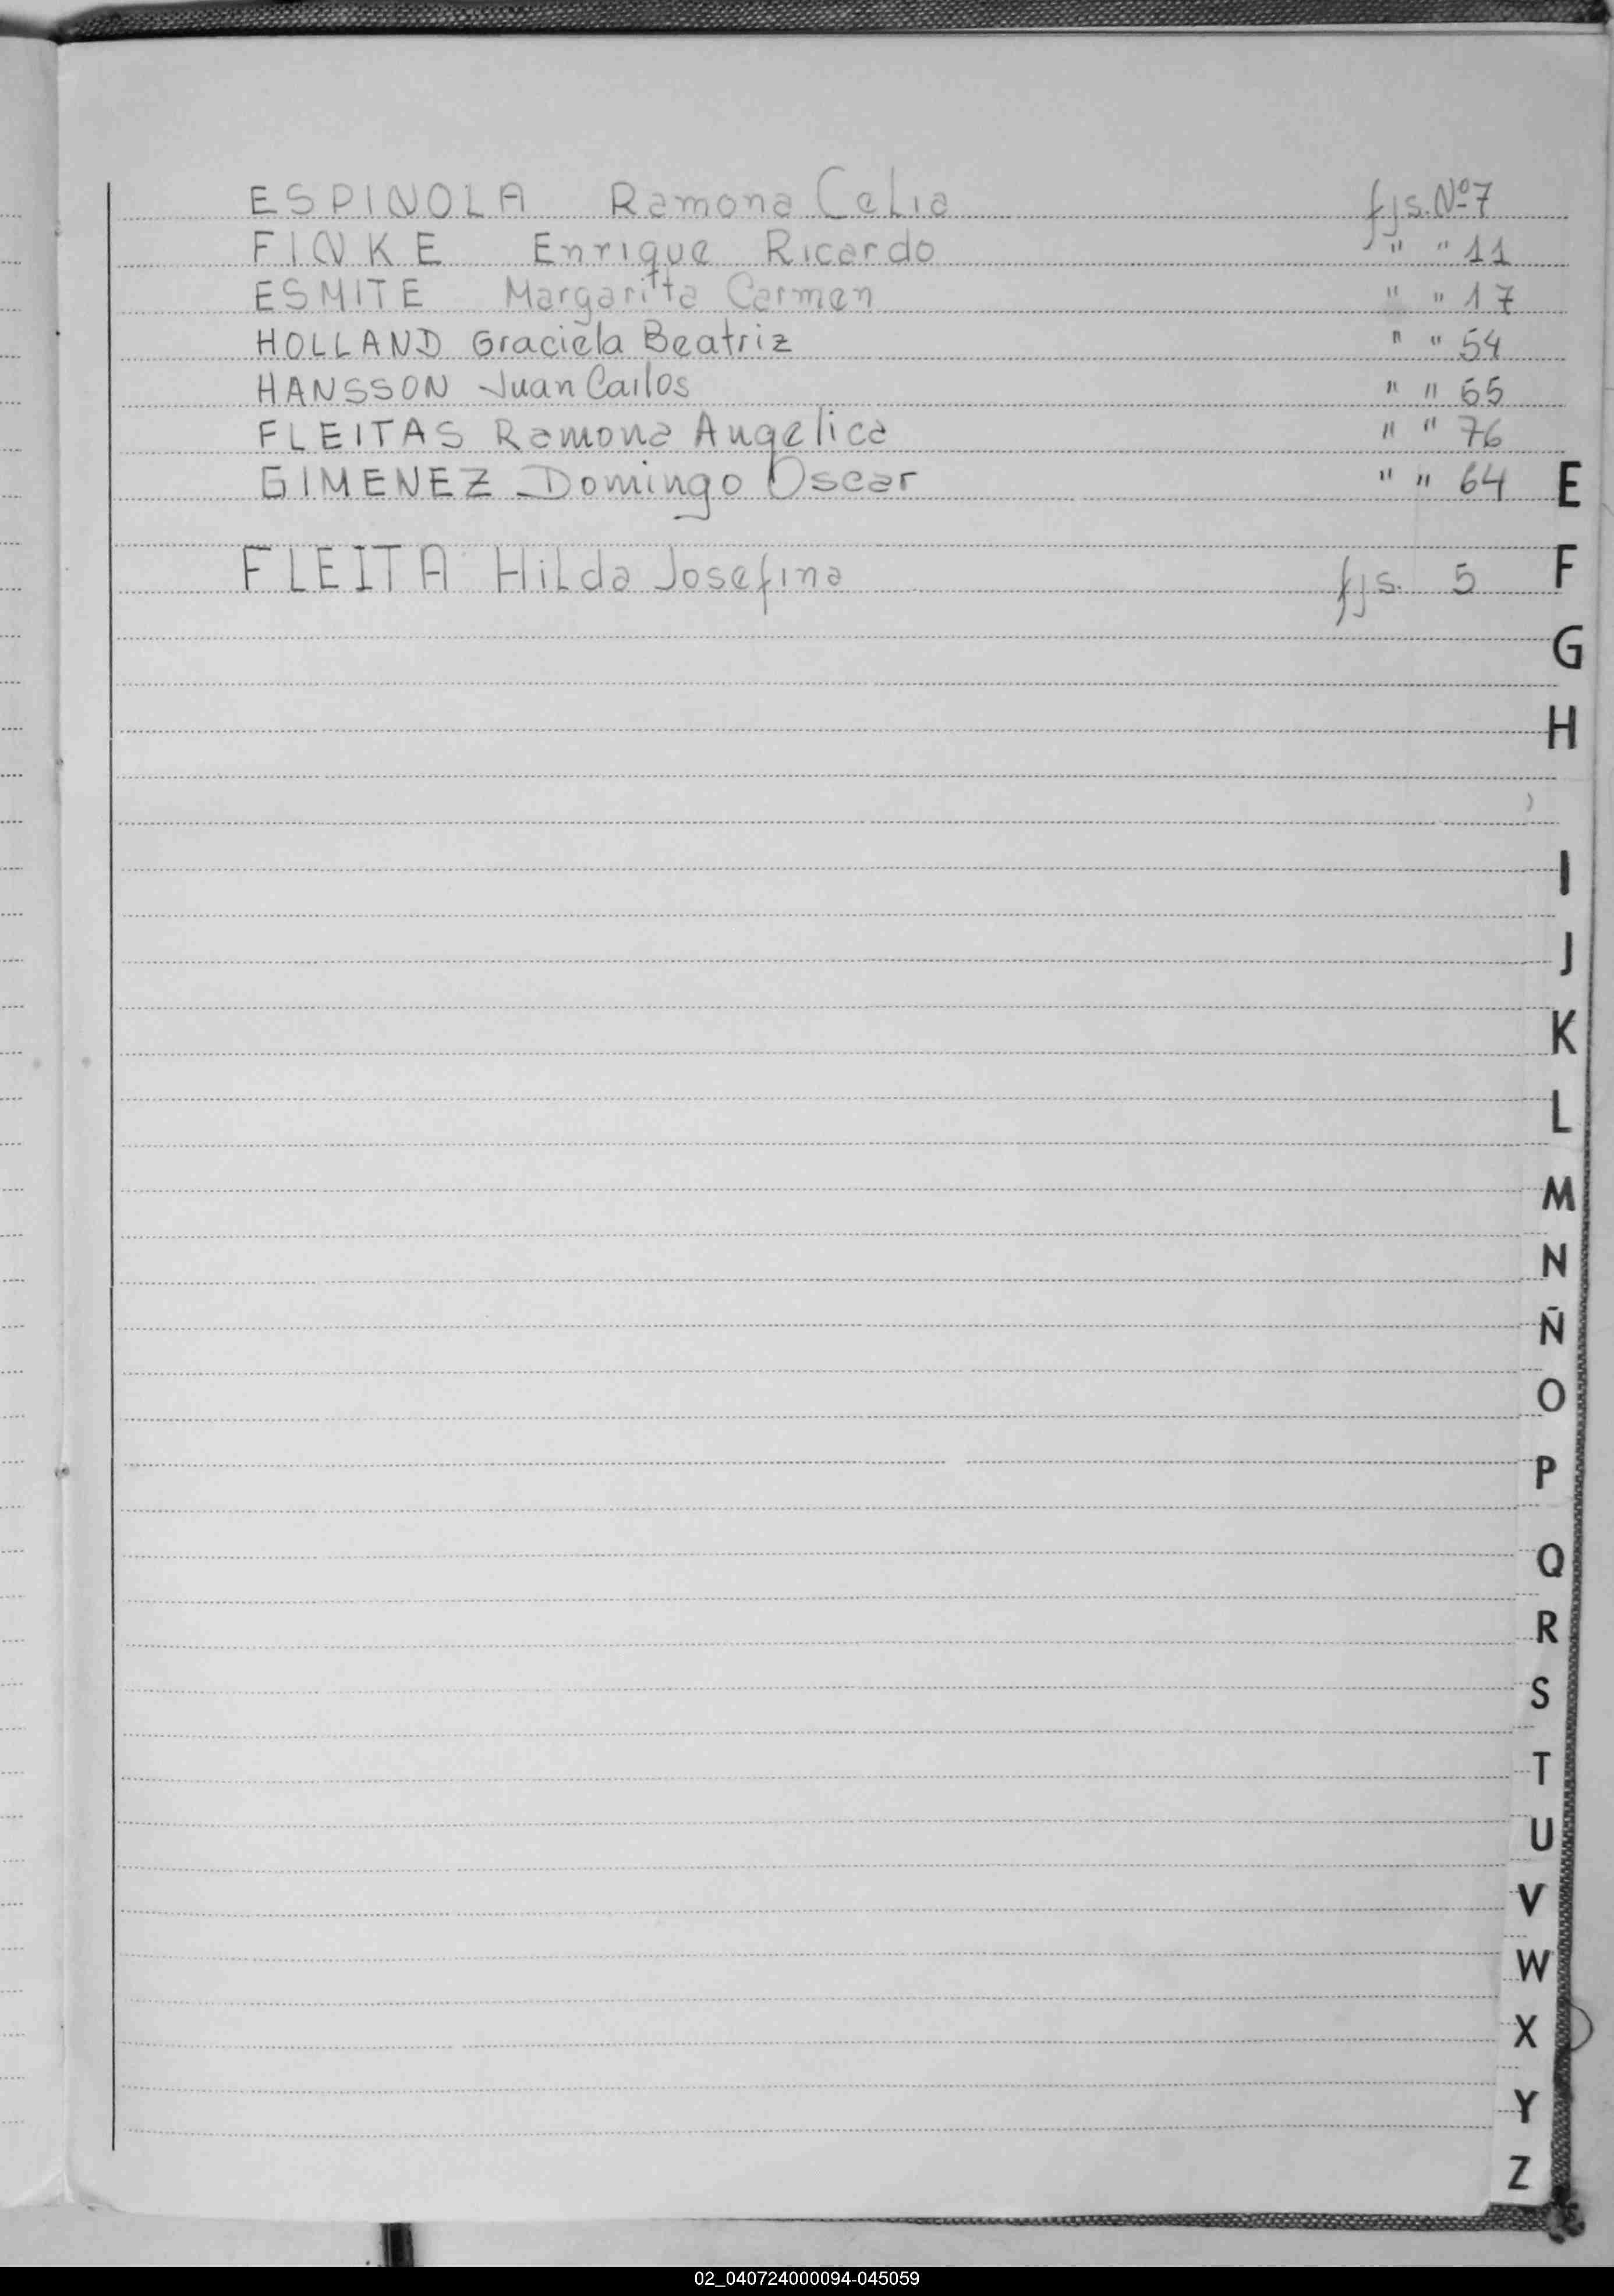 ESPINOLA Ramona Celia fjs. Nº 7
FINKE Enrique Ricardo " " 11
ESMITE Margaritta Carmen " " 17
HOLLAND Graciela Beatriz " " 54
HANSSON Juan Carlos " " 55
FLEITAS Ramona Angelica " " 76
GIMENEZ Domingo Oscar " " 64
FLEITA Hilda Josefina fjs. 5
E
F
G
H
I
J
K
L
M
N
Ñ
O
P
Q
R
S
T
U
V
W
X
Y
Z
02_040724000094-045059